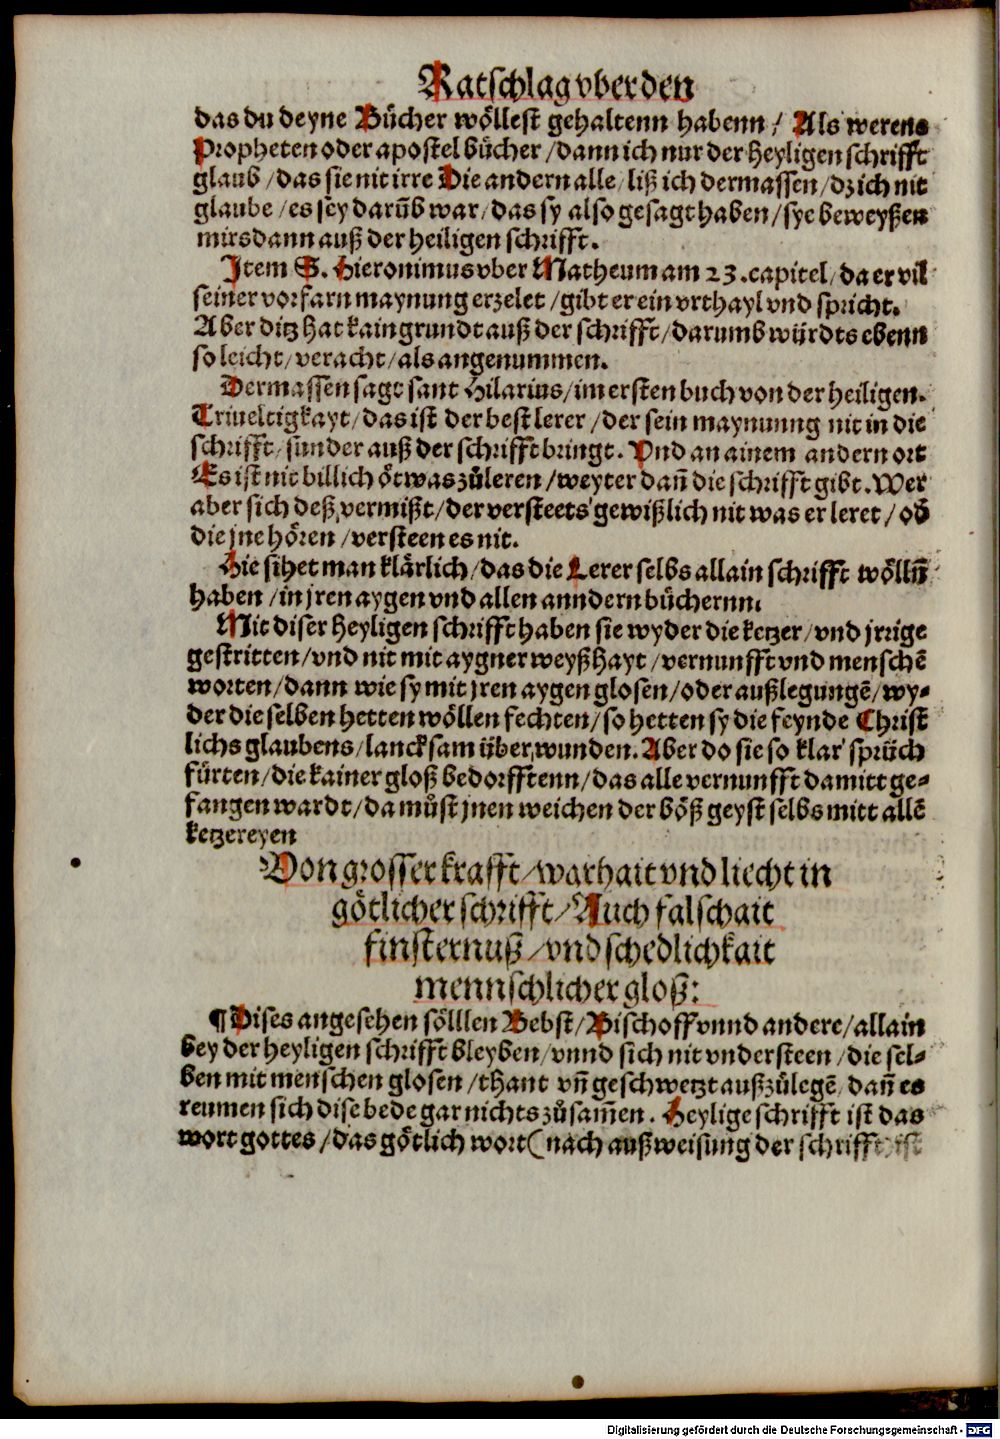 Ratschlag vber den
das du deyne Bücher wöllest gehaltenn habenn / Als werens
Propheten oder apostel bücher / dann ich nur der heyligen schrifft
glaub / das sie nit irre Die andern alle / liß ich dermassen / dz ich nit
glaube / es sey darũb war / das sy also gesagt haben / sye beweyßen
mirs dann auß der heiligen schrifft.
Item S. Hieronimus vber Matheum am 23. capitel / da er vil
seiner vorfarn maynung erzelet / gibt er ein vrthayl vnd spricht.
Aber ditz hat kain grundt auß der schrifft / darumb würdts ebenn
so leicht / veracht / als angenummen.
Dermassen sagt sant Hilarius / im ersten buch von der heiligen.
Triueltigkayt / das ist der best lerer / der sein maynunng nit in die
schrifft / sunder auß der schrifft bringt. Vnd an ainem andern ort
Es ist nit billich ötwas zůleren / weyter dañ die schrifft gibt. Wer
aber sich deß vermißt / der versteets gewißlich nit was er leret / ob
die jne hören / versteen es nit.
Hie sihet man klärlich / das die Lerer selbs allain schrifft wölln̄
haben / in jren aygen vnd allen anndern büchernn.
Mit diser heyligen schrifft haben sie wyder die ketzer / vnd jrrige
gestritten / vnd nit mit aygner weyßhayt / vernunfft vnd menschẽ
worten / dann wie sy mit jren aygen glosen / oder außlegungẽ / wy-
der die selben hetten wöllen fechten / so hetten sy die feynde Christ
lichs glaubens / lancksam überwunden. Aber do sie so klar sprüch
fürten / die kainer gloß bedorfftenn / das alle vernunfft damitt ge-
fangen wardt / da můst jnen weichen der böß geyst selbs mitt allẽ
ketzereyen
Von grosser krafft / warhait vnd liecht in
götlicher schrifft / Auch falschait
finsternuß / vnd schedlichkait
mennschlicher gloß:
¶ Dises angesehen sölllen Bebst / Bischoff vnnd andere / allain
bey der heyligen schrifft bleyben / vnnd sich nit vndersteen / die sel-
ben mit menschen glosen / thant vñ geschwetzt außzůlegẽ / dañ es
reumen sich dise bede gar nichts zůsam̃en. Heylige schrifft ist das
wort gottes / das götlich wort ( nach außweisung der schrifft ) ist
Digitalisierung gefördert durch die Deutsche Forschungsgemeinschaft - DFG